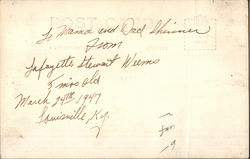 POST CARD
To Mama and Dad Skinner
From
Lafayette Stewart Weems
5 mos old
March 24th, 1947
Louisville, Ky.